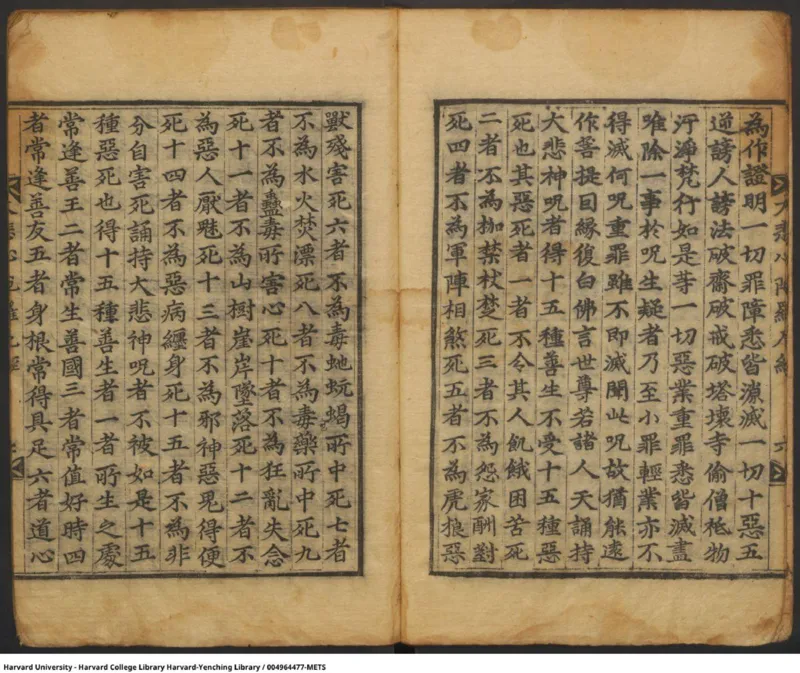 大悲心陀羅尼經 六
為作證明一切罪障悉皆消滅一切十惡五
逆謗人謗法破齋破戒破塔壞寺偷僧祇物
汙淨梵行如是等一切惡業重罪悉皆滅盡
唯除一事於呪生疑者乃至小罪輕業亦不
得滅何呪重罪雖不即滅聞此呪故猶能遠
作菩提因緣復白佛言世尊若諸人天誦持
大悲神呪者得十五種善生不受十五種惡
死也其惡死者一者不令其人飢餓困苦死
二者不為枷禁杖楚死三者不為怨家酬對
死四者不為軍陣相煞死五者不為虎狼惡
獸殘害死六者不為毒虵蚖蝎所中死七者
不為水火焚漂死八者不為毒藥所中死九
者不為蠱毒所害心死十者不為狂亂失念
死十一者不為山樹崖岸墜落死十二者不
為惡人厭魅死十三者不為邪神惡鬼得便
死十四者不為惡病纏身死十五者不為非
分自害死誦持大悲神呪者不被如是十五
種惡死也得十五種善生者一者所生之處
常逢善王二者常生善國三者常值好時四
者常逢善友五者身根常得具足六者道心
Harvard University - Harvard College Library Harvard-Yenching Library / 004964477-METS